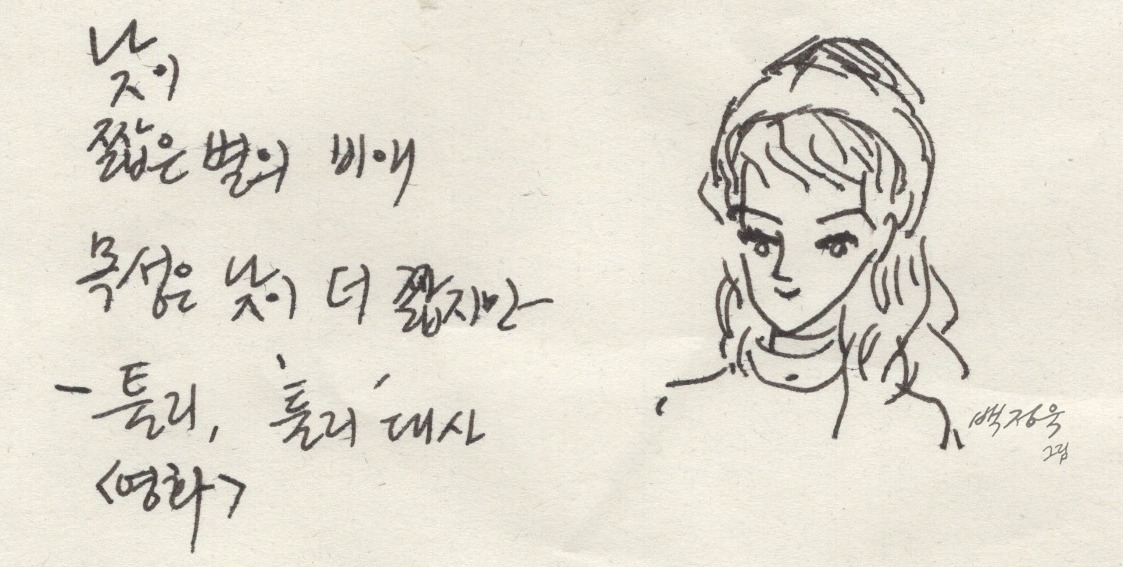 낮이
짧은 별의 비애
목성은 낮이 더 짧지만
- 틀리, '틀리' 대사
<영화>
백정욱
그림